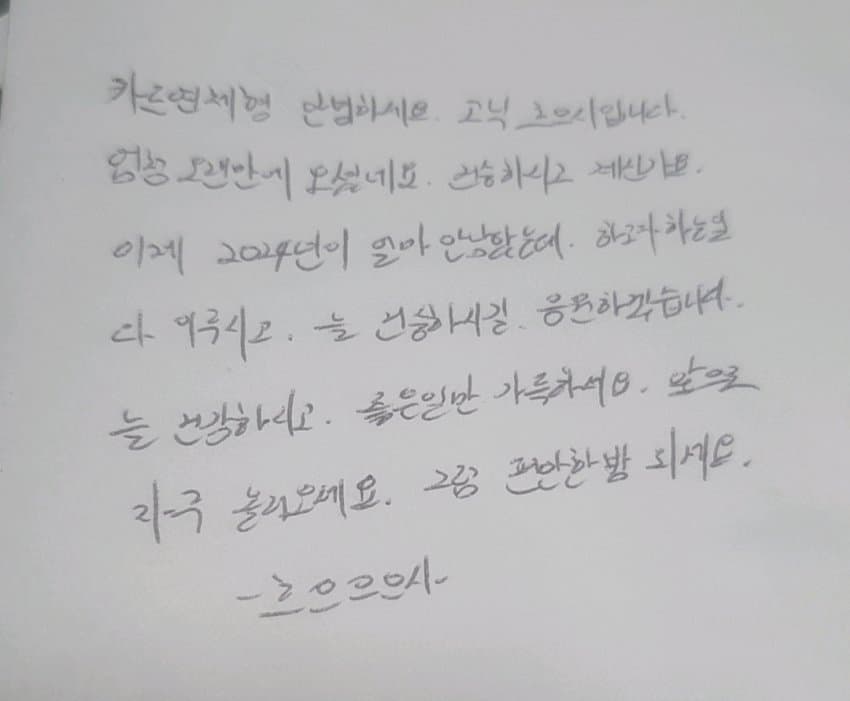 카르연체형 안녑하세요. 고닉 흐으시입니다.
엄청 오랜만에 오셨네요. 건승하시고 계신가요.
이제 2024년이 얼마 안남았는데. 하고자 하는일
다 이루시고. 늘 건승하시길. 응원하겠습니다.
늘 건강하시고. 좋은일만 가득하세요. 앞으로
자주 놀러오세요. 그럼 편안한 밤 되세요.
-흐으으으시-